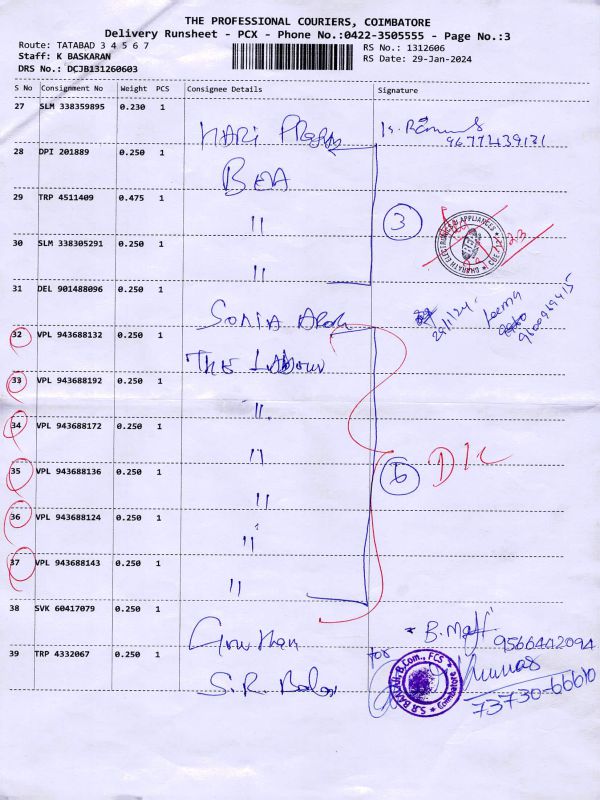 THE PROFESSIONAL COURIERS, COIMBATORE
Delivery Runsheet - PCX - Phone No.:0422-3505555 - Page No.:3
Route: TATABAD 3 4 5 6 7
RS No.: 1312606
Staff: K BASKARAN
RS Date: 29-Jan-2024
DRS No.: DCJB131260603
S No Consignment No Weight PCS Consignee Details Signature
27 SLM 338359895 0.230 1
HARI
9677439131
28 DPI 201889 0.250 1
BEA
29 TRP 4511409 0.475 1
"
3
BHARATH ELECTRONICS AND APPLIANCES
30 SLM 338305291 0.250 1
"
31 DEL 901488096 0.250 1
SONIA
29/1/24
Leema
32 VPL 943688132 0.250 1
THE LABOUR
33 VPL 943688192 0.250 1
"
34 VPL 943688172 0.250 1
"
35 VPL 943688136 0.250 1
"
6
36 VPL 943688124 0.250 1
"
37 VPL 943688143 0.250 1
"
38 SVK 60417079 0.250 1
9566442094
39 TRP 4332067 0.250 1
S.R. Balaji
for
S.R. BALAJI, B.Com., FCS
Coimbatore
Kumar
73730-66610